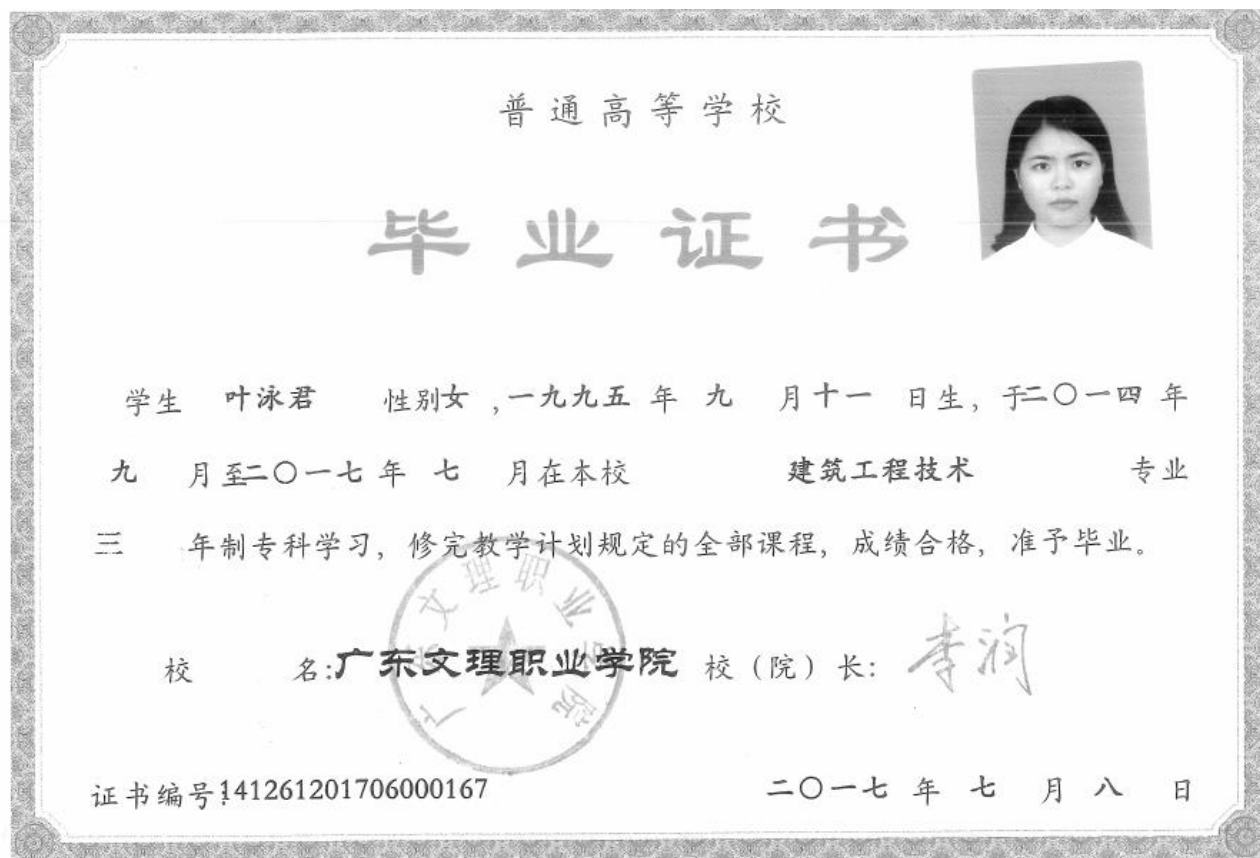 普通高等学校
毕业证书
学生 叶泳君 性别女,一九九五年 九 月十一 日生,于二〇一四年
九 月至二〇一七年 七 月在本校 建筑工程技术 专业
三 年制专科学习,修完教学计划规定的全部课程,成绩合格,准予毕业。
广东文理职业学院
校 名:广东文理职业学院 校(院)长: 李润
证书编号:141261201706000167 二〇一七年 七 月 八 日